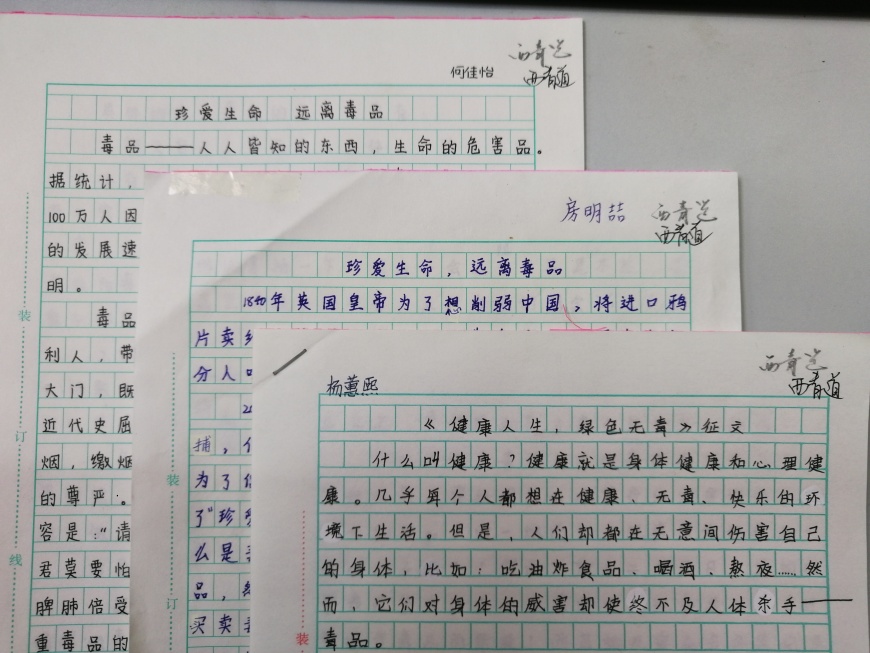 何佳怡
西青道
西青道
珍爱生命 远离毒品
毒品——人人皆知的东西，生命的危害品。
据统计，
100万人因
的发展速
明。
毒品
利人，带
大门，既
近代史屈
烟，缴烟
的尊严。
容是："请
君莫要怕
脾肺倍受
重毒品的
装
订
线
房明喆
西青道
西青道
珍爱生命，远离毒品
1840年英国皇帝为了想削弱中国，将进口鸦
片卖
分人
捕，
为了
了"珍
么是
品，
买卖
装
订
西青道
西青道
杨蕙熙
《健康人生，绿色无毒》征文
什么叫健康？健康就是身体健康和心理健
康。几乎每个人都想在健康、无毒、快乐的环
境下生活。但是，人们却都在无意间伤害自己
的身体，比如：吃油炸食品、喝酒、熬夜……然
而，它们对身体的威害却使终不及人体杀手——
毒品。
装